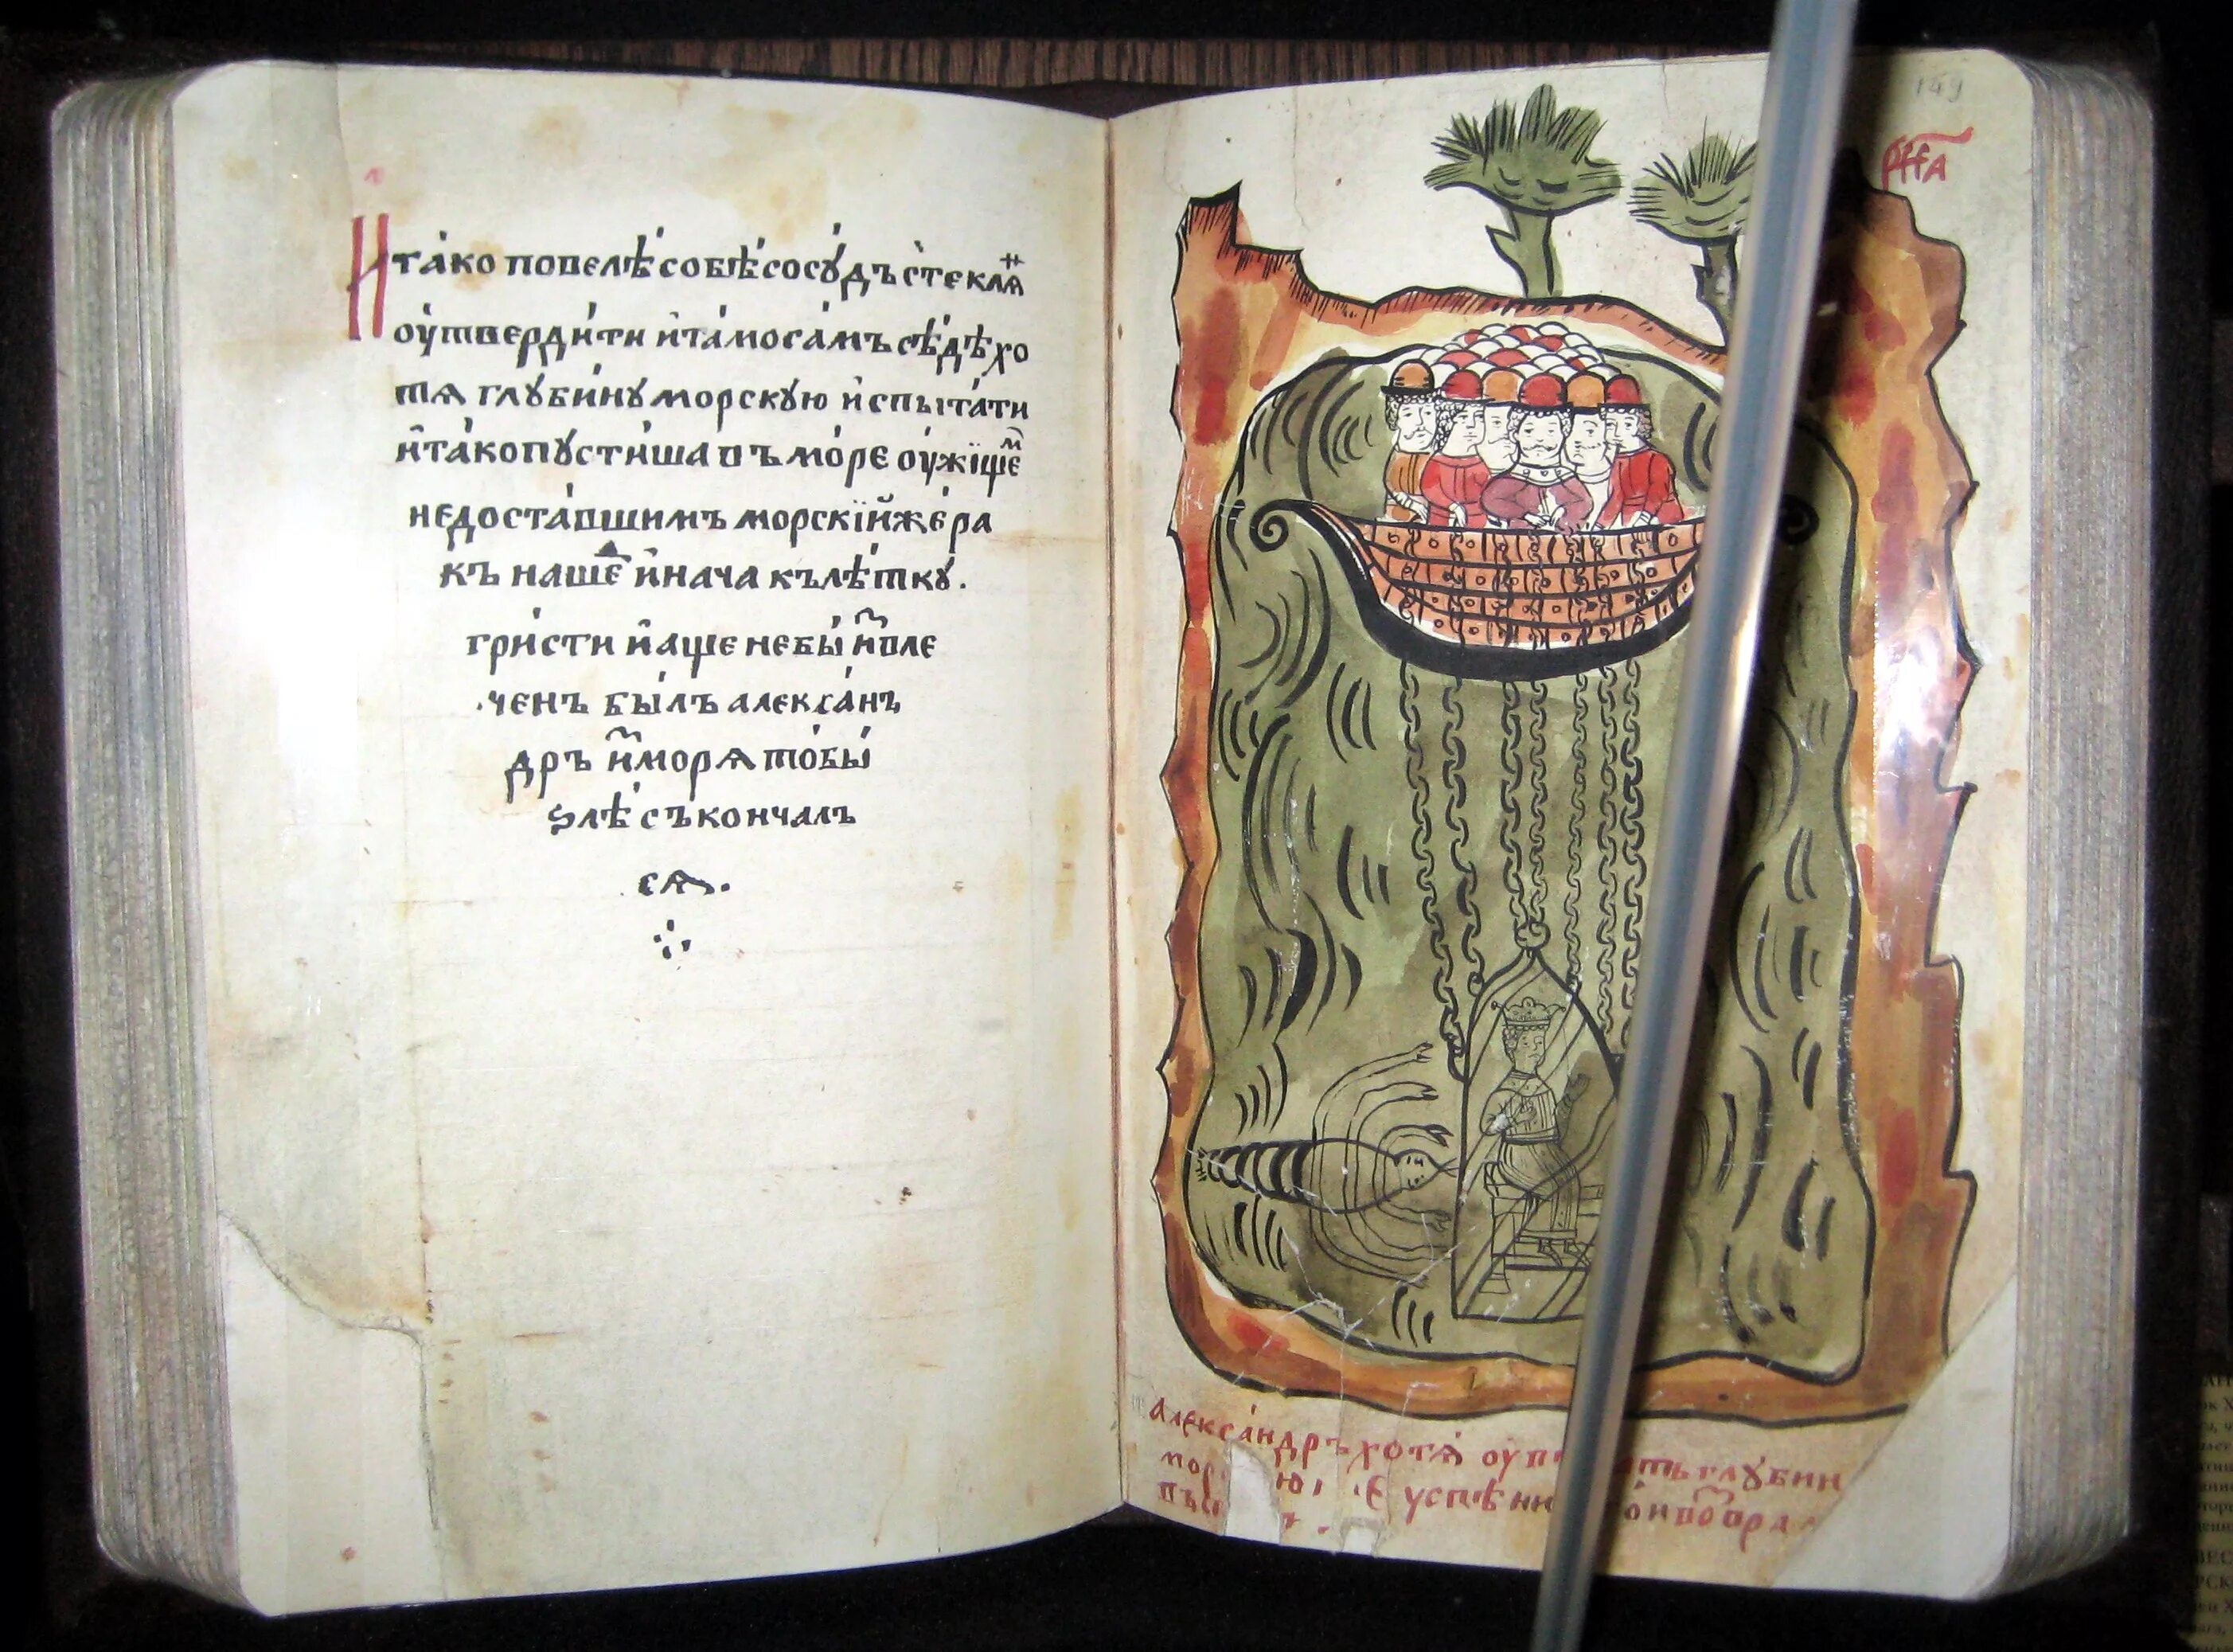 И тако повелѣ собѣ сосудъ стеклян
оутвердити и тамо самъ сѣдѣ хо
тя глубину морскую испытати
и тако пустиша въ море оужищемъ
недоставшимъ морскїй же ра
къ нашед и нача кълѣтку.
грысти и аще не бы извле
ченъ былъ алексанъ
дръ из моря то бы
ѕлѣ съкончалъ
ся.
149
рна
Александръ хотя оу глубин
мор ю